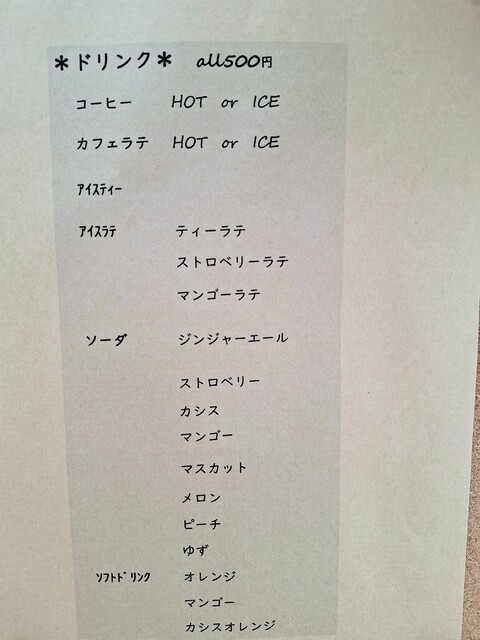 ＊ドリンク＊ all500円
コーヒー HOT or ICE
カフェラテ HOT or ICE
ｱｲｽﾃｨｰ
ｱｲｽﾗﾃ ティーラテ
ストロベリーラテ
マンゴーラテ
ソーダ ジンジャーエール
ストロベリー
カシス
マンゴー
マスカット
メロン
ピーチ
ゆず
ｿﾌﾄﾄﾞﾘﾝｸ オレンジ
マンゴー
カシスオレンジ